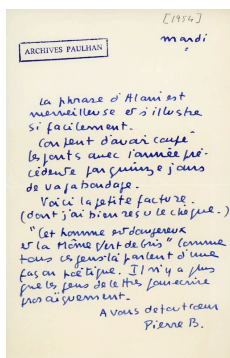 [1954]
mardi
ARCHIVES PAULHAN
La phrase d'Alain est
merveilleuse et s'illustre
si facilement.
Content d'avoir coupé
les ponts avec l'année pré-
cédente par quinze jours
de vagabondage.
Voici la petite facture.
(dont j'ai bien reçu le chèque.)
"Cet homme est dangereux
et la Môme vert de gris" comme
tous ces gens là parlent d'une
façon poétique. Il n'y a plus
que les gens de lettres pour écrire
prosaïquement.
A vous de tout cœur
Pierre B.